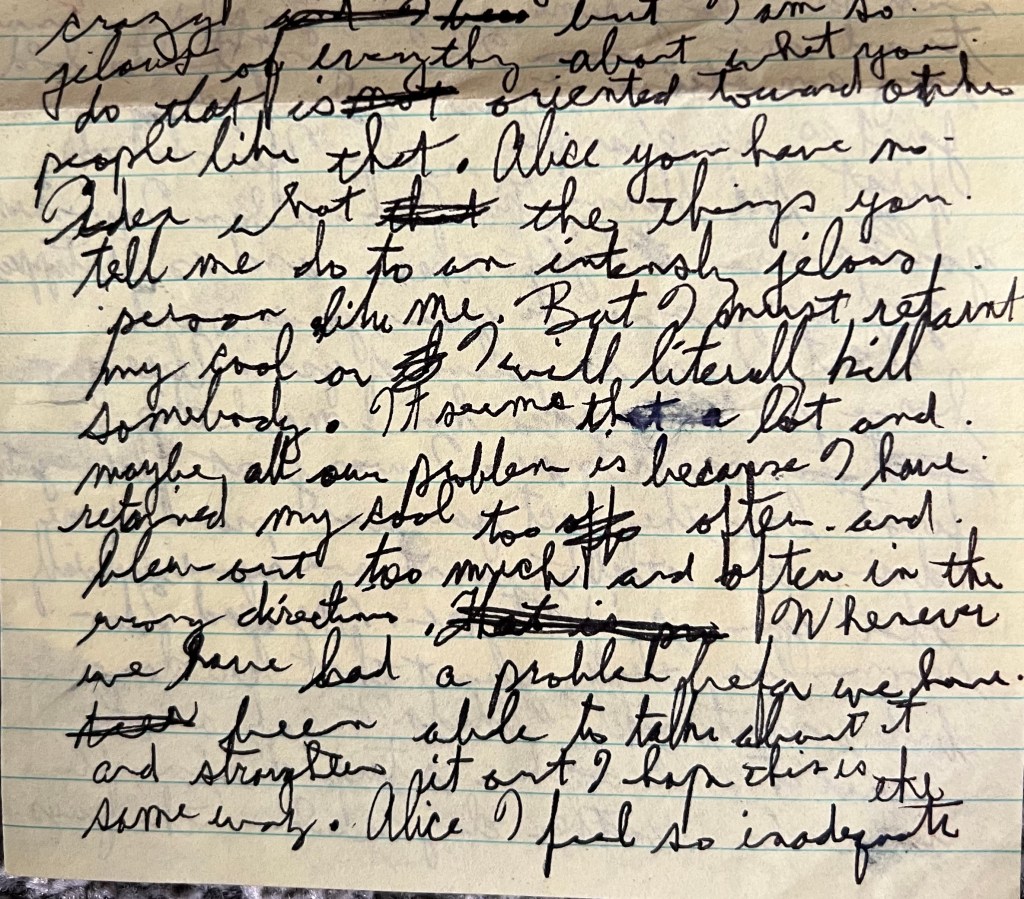 crazy but I am so
jelous of everythg about what you
do that is not oriented toward othe
people like that. Alice you have no
Idea what that the things you
tell me do to an intensly jelous
person like me. But I must retaint
my cool or I will literall kill
somebody. It seems that a lot and
maybe all our problem is because I have
retained my cool too often and
blew out too much and often in the
wrong direction. That is pro Whenever
we have had a problem before we have
been able to talk about it
and straighten it out I hope this is the
same way. Alice I feel so inadequate